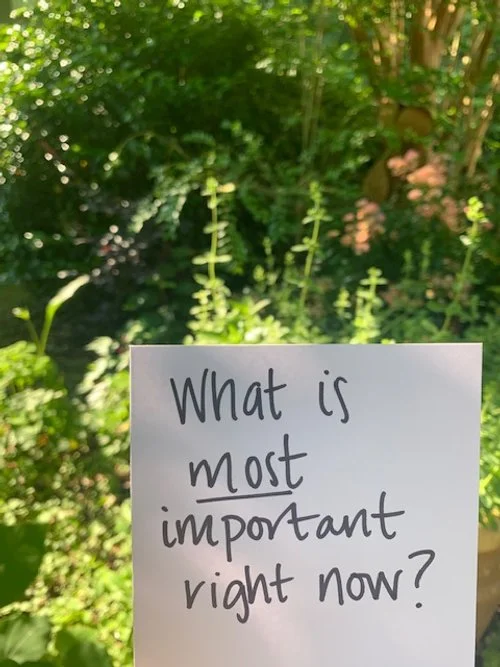 What is
most
important
right now?